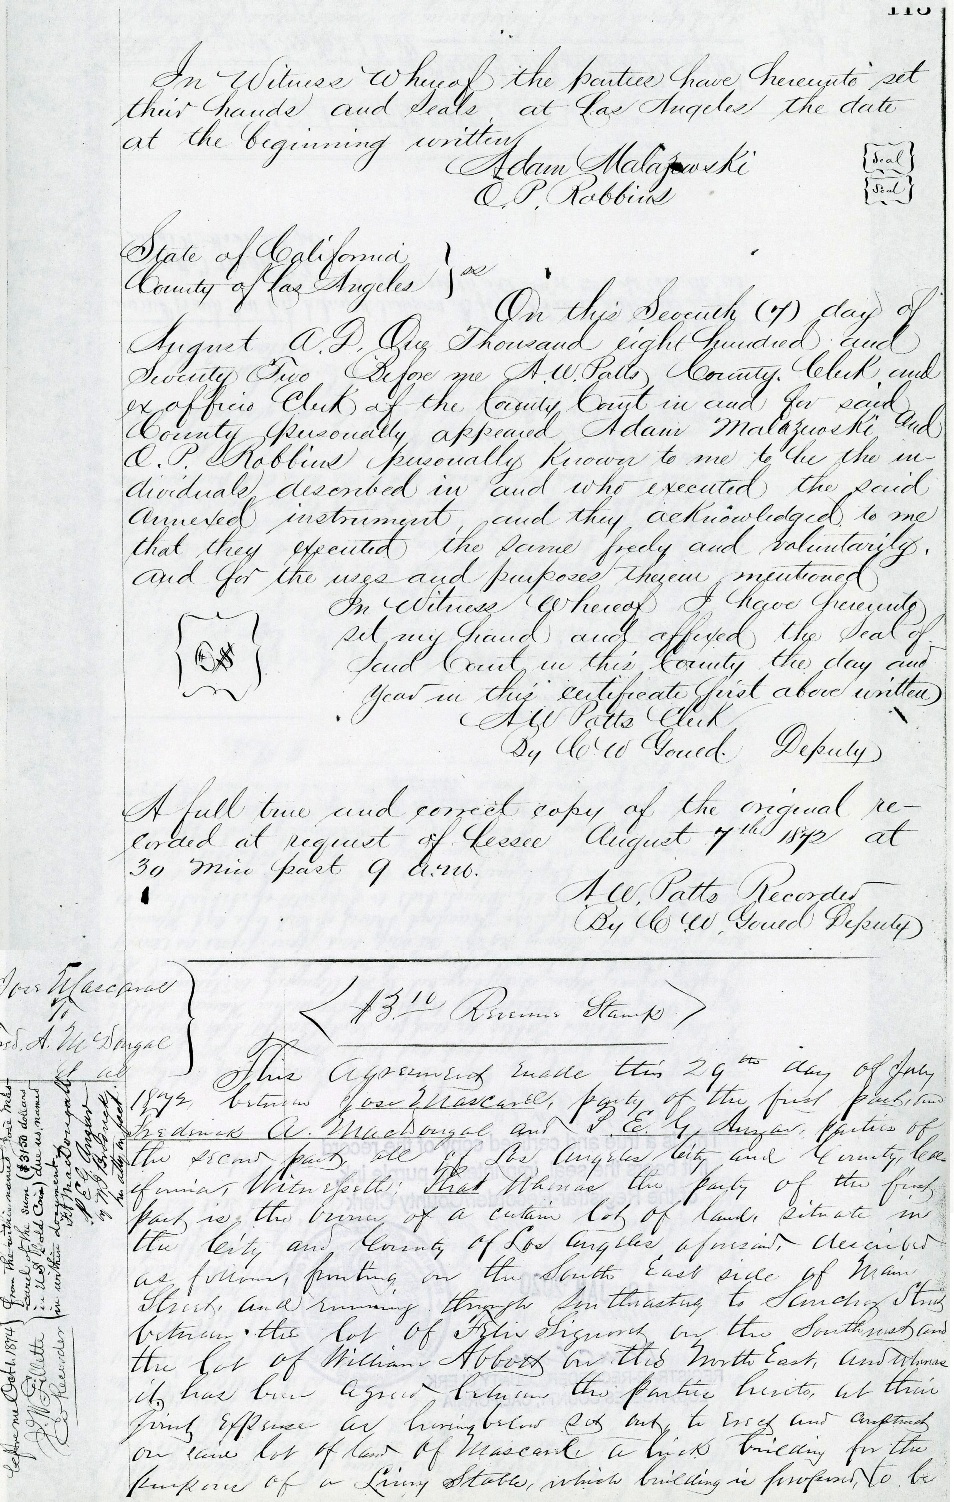 113
In Witness Whereof the parties have hereunto set
their hands and seals at Los Angeles the date
at the beginning written
Adam Malazewski
Seal
O. P. Robbins
Seal
State of California
County of Los Angeles } ss
On this Seventh (7) day of
August A.D. One Thousand eight hundred and
Seventy Two Before me A. W. Potts County Clerk and
ex officio Clerk of the County Court in and for said
County personally appeared Adam Malazewski and
O. P. Robbins personally known to me to be the in-
dividuals described in and who executed the said
annexed instrument, and they acknowledged to me
that they executed the same freely and voluntarily.
and for the uses and purposes therein mentioned
In Witness Whereof I have hereunto
set my hand and affixed the Seal of
Said Court in this County the day and
year in this certificate first above written
A W Potts Clerk
By C W Gould. Deputy
A full true and correct copy of the original re-
corded at request of Lessee August 7th 1872 at
30 min past 9 a.m.
A. W. Potts Recorder
By C. W. Gould Deputy
Jose Mascarel
To
A. McDougal
et al
$3.10 Revenue Stamp
This Agreement made this 29th day of July
1872, between Jose Mascarel, party of the first part, and
Frederick A. MacDougal and P. E. G. Anzar, parties of
the second part, all of Los Angeles City and County, Cal-
ifornia, Witnesseth: That Whereas the party of the first
part is the owner of a certain lot of land, situate in
the City and County of Los Angeles, aforesaid, described
as follows, fronting on the South East side of Main
Street, and running through southeasterly to Sanchez Street
between the lot of Felix Signoret on the Southwest and
the lot of William Abbott on the North East, and whereas
it has been agreed between the parties hereto, at their
joint expense as hereinbelow set out, to erect and construct
on said lot of land of Mascarel a brick building for the
purpose of a Livery Stable, which building is proposed to be
from the within named Jose Mas-
carel of the sum ($3150 dollars
in U.S. Gold Coin) due us, named
in within document.
F A MacDougall
P E G Anzar
before me Oct 1, 1874
J. W. Gillette
Co Recorder